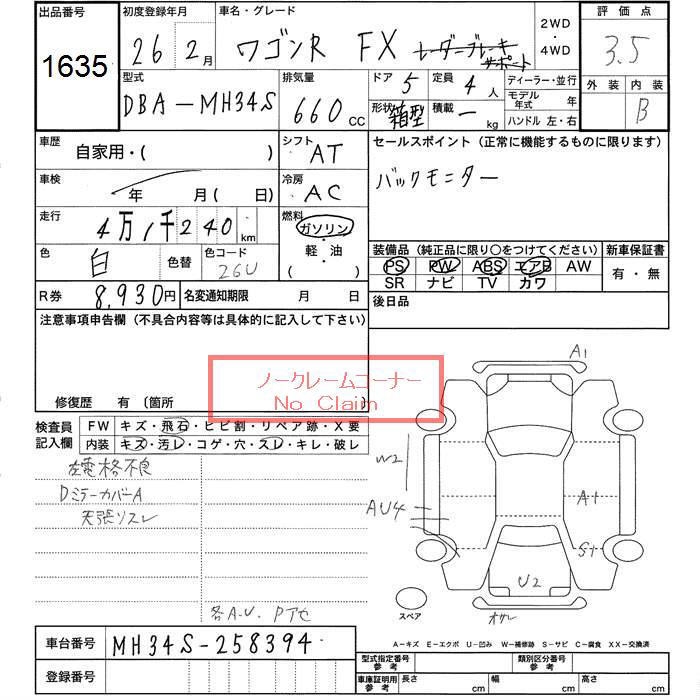 出品番号
1635
初度登録年月
26 2月
車名・グレード
ワゴンR FX レーダーブレーキ
サポート
2WD
・
4WD
評価点
3.5
外装 内装
B
型式
DBA-MH34S
排気量
660cc
ドア 5
定員 4人
ディーラー・並行
モデル年式 年
ハンドル 左・右
形状 箱型
積載 — kg
車歴
自家用・( )
シフト
AT
セールスポイント(正常に機能するものに限ります)
バックモニター
車検
年 月( 日)
冷房
AC
走行
4万1千240km
燃料
ガソリン
・
軽・油
( )
色
白
色替
色コード
26U
装備品(純正品に限り〇をつけてください)
PS PW ABS エアB AW
SR ナビ TV カワ
新車保証書
有・無
R券 8,930円
名変通知期限 月 日
後日品
注意事項申告欄(不具合内容等は具体的に記入して下さい)
ノークレームコーナー
No Claim
修復歴 有〔箇所 〕
検査員記入欄
FW キズ・飛石・ヒビ割・リペア跡・X要
内装 キズ・汚レ・コゲ・穴・スレ・キレ・破レ
左電格不良
DミラーカバーA
天張リスレ
各A.U. Pアセ
A1
W2
AU4
A1
S1
U2
スペア
オサレ
A-キズ E-エクボ U-凹み W-補修跡 S-サビ C-腐食 XX-交換済
車台番号 MH34S-258394
登録番号
型式指定番号参考
類別区分番号参考
車庫証明用参考 長さ cm 幅 cm 高さ cm